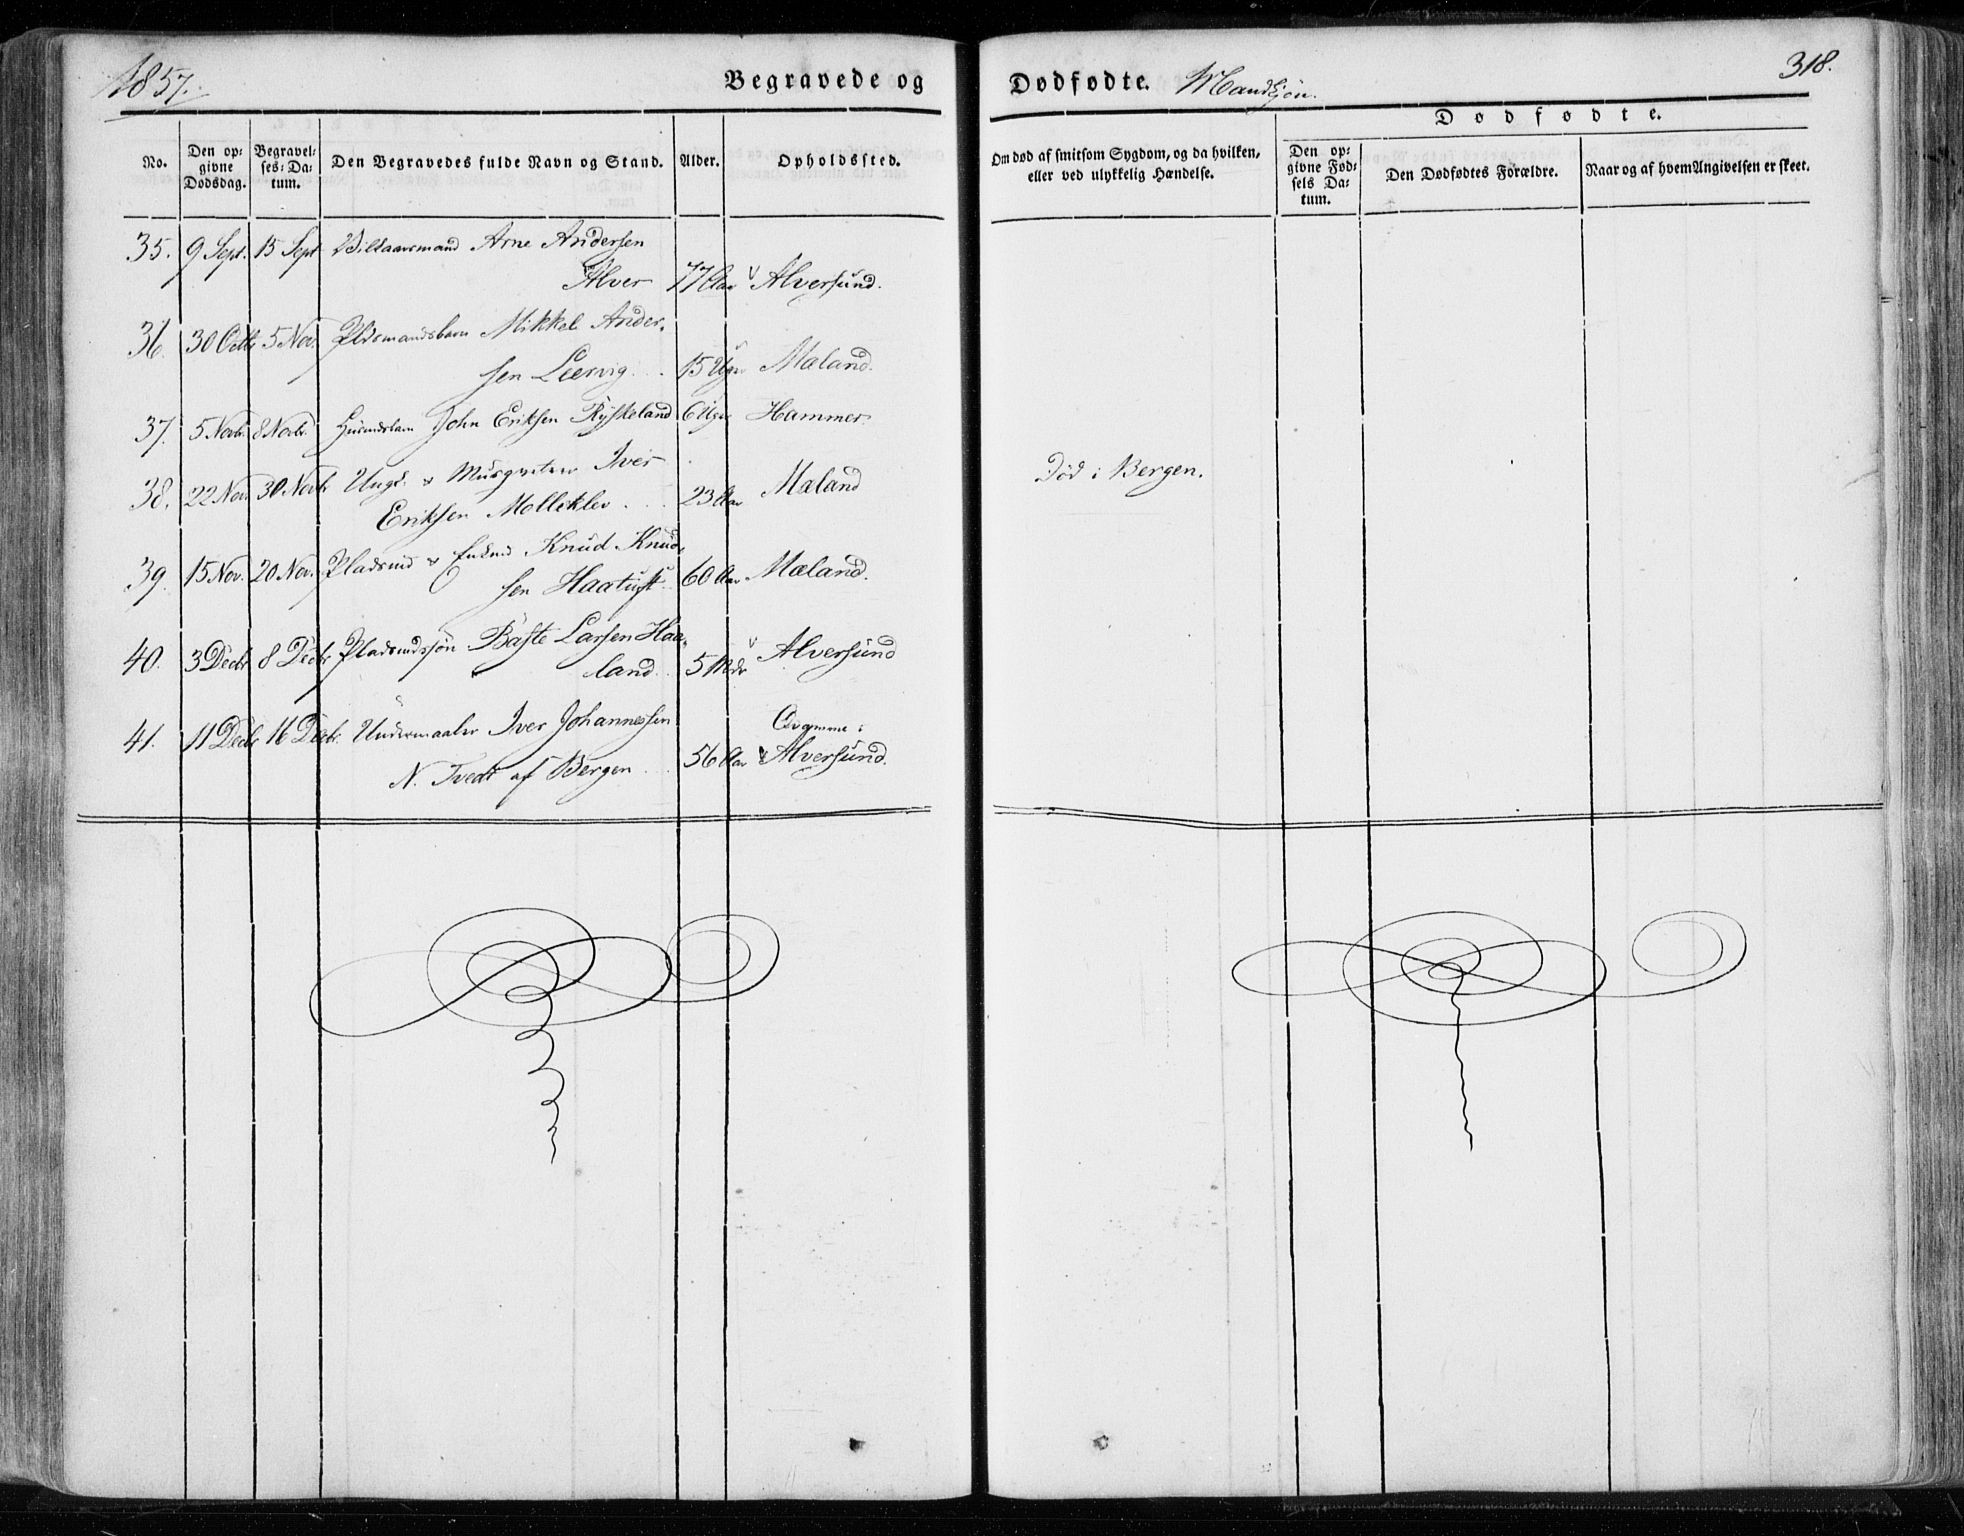 1857.
Begravede og Dødfødte. Mandkjøn.
318.
Dødfødte.
No.
Den op-
givne
Dødsdag.
Begravel-
ses-Da-
tum.
Den Begravedes fulde Navn og Stand.
Alder.
Opholdssted.
Om død af smitsom Sygdom, og da hvilken,
eller ved ulykkelig Hændelse.
Den op-
givne Fød-
sels Da-
tum.
Den Dødfødtes Forældre.
Naar og af hvem Angivelsen er skeet.
35. 9 Sept. 15 Sept Vilkaarsmand Arne Andersen
Alver 77 Aar Alversund.
36. 30 Octb 5 Nov. Pldsmandsbarn Mikkel Ander-
sen Leervig 15 Uger Mæland.
37. 5 Novbr 8 Novbr. Huusmdsbarn John Eriksen Ryskeland 6 Uger Hammer
38. 22 Nov 30 Novbr Ungk. Iver
Eriksen Molleklev 23 Aar Mæland Død i Bergen.
39. 15 Nov. 20 Nov. Pladsmd Enkmd Knud Knud-
sen Haatuft 60 Aar Mæland.
40. 3 Decbr 8 Decbr Pladsmdssøn Baste Larsen Haa-
land 5 Mdr Alversund
41. 11 Decbr 16 Decbr. Undermaaler Iver Johannessen
N. Tvedt af Bergen 56 Aar Qvamme i
Alversund.